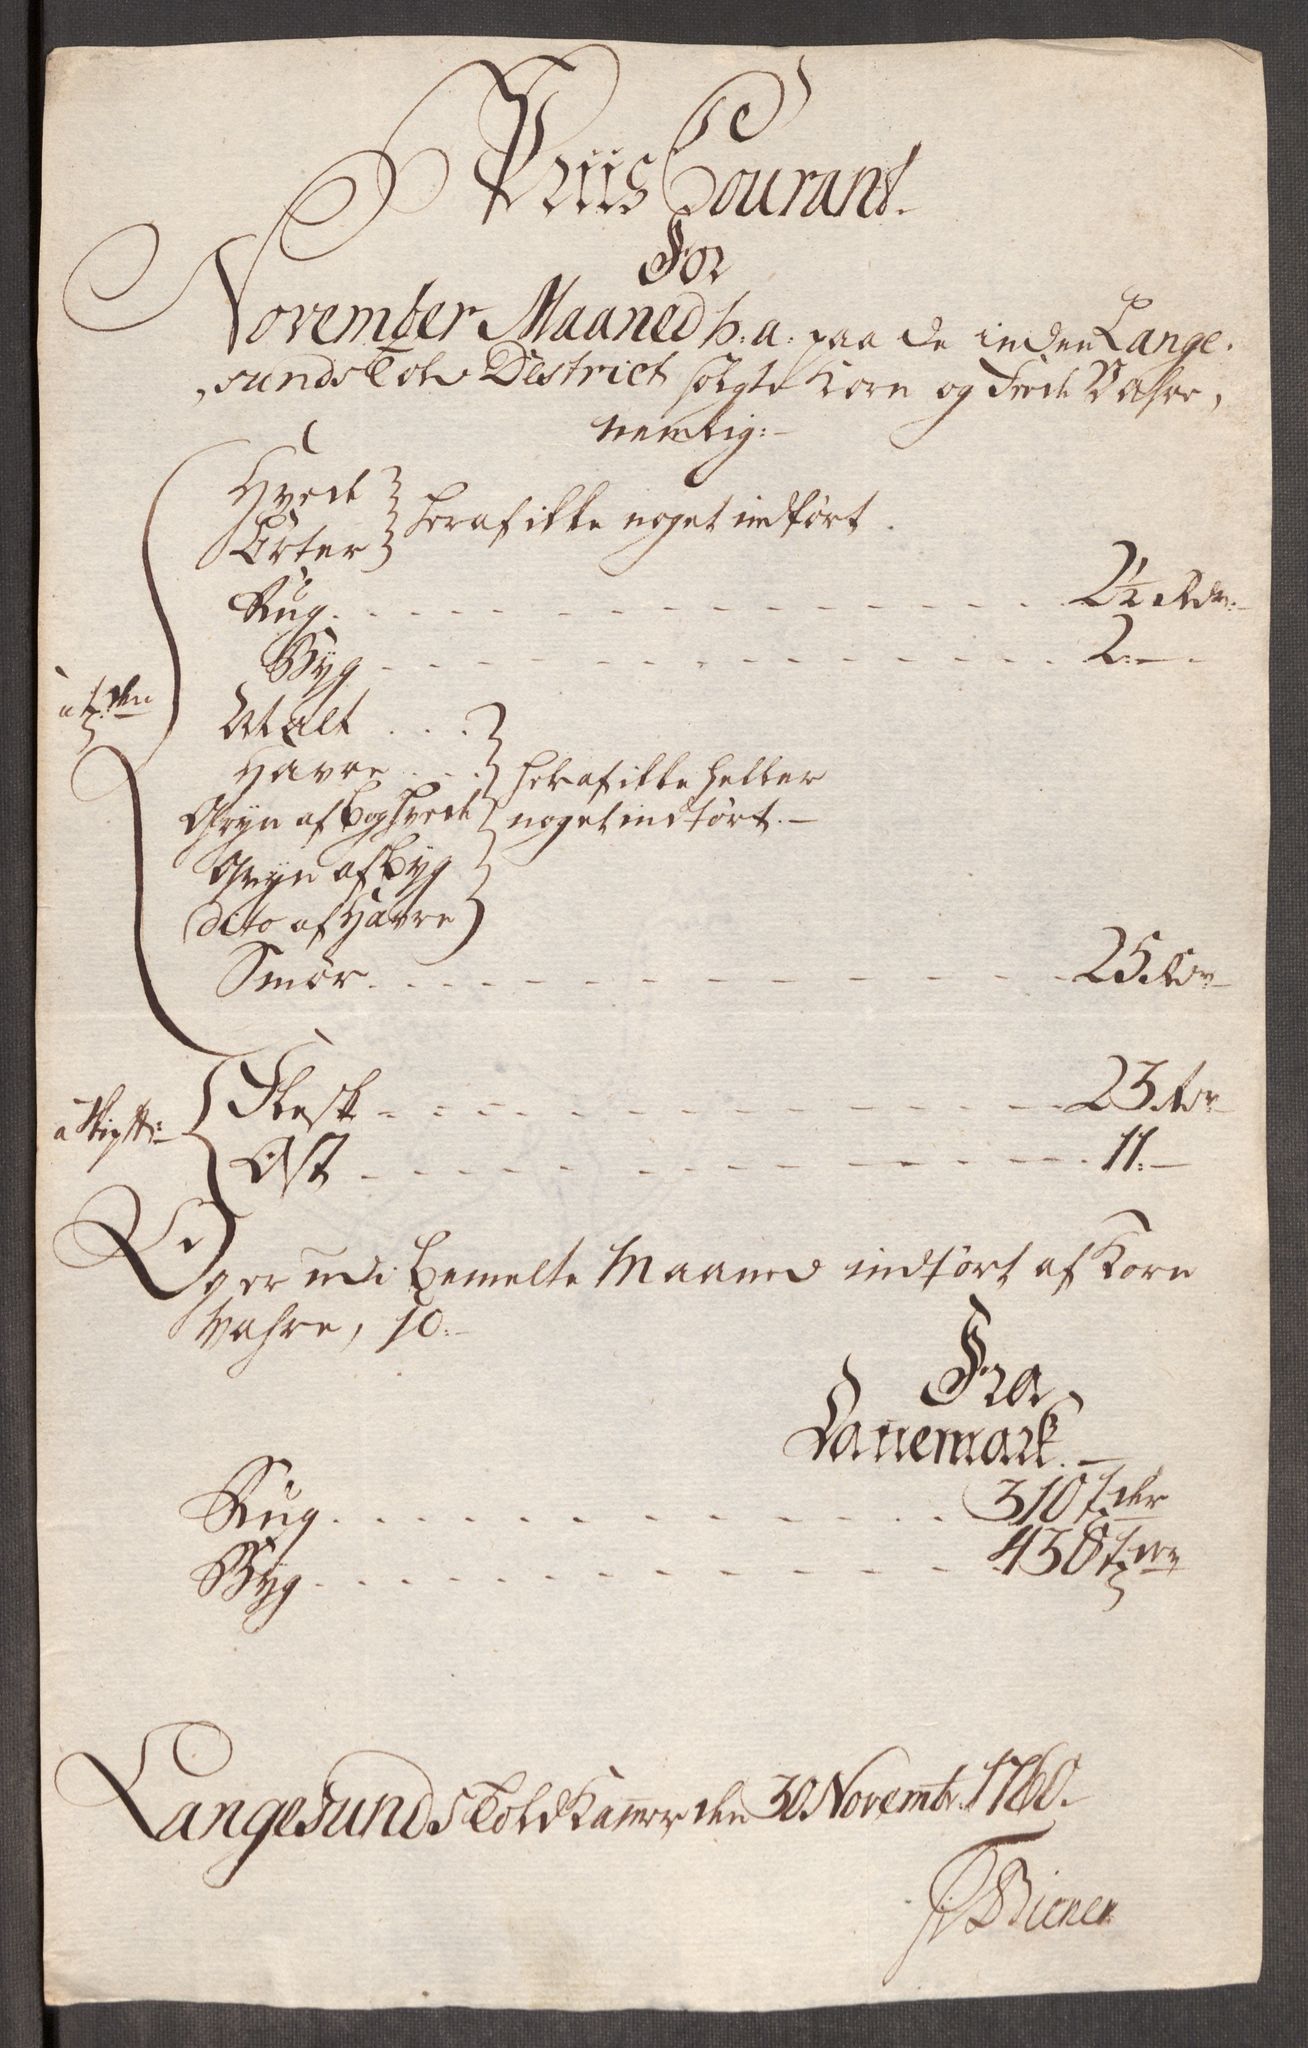 Priis Courant
For
November Maaned h: a: paa de inden Lange-
sunds Told District solgte Korn og Fede Vahre,
nemlig:
Hvede
Erter
heraf ikke noget indført.
Rug 2½ Rdr:
Byg 2:
a tden
Malt
Havre
Gryn af Boghvede
Gryn af Byg
dito af Havre
heraf ikke heller
noget indført.
Smør 25 Rdr
a Skip℔:
Flesk 23 Rdr
Ost 11:
Og er udi bemelte Maaned indført af Korn
Vahre, 10:
Fra
Dannemark.
Rug 310 tder
Byg 438 tder
Langesunds Told Kammer den 30 Novembr. 1760.
Biener